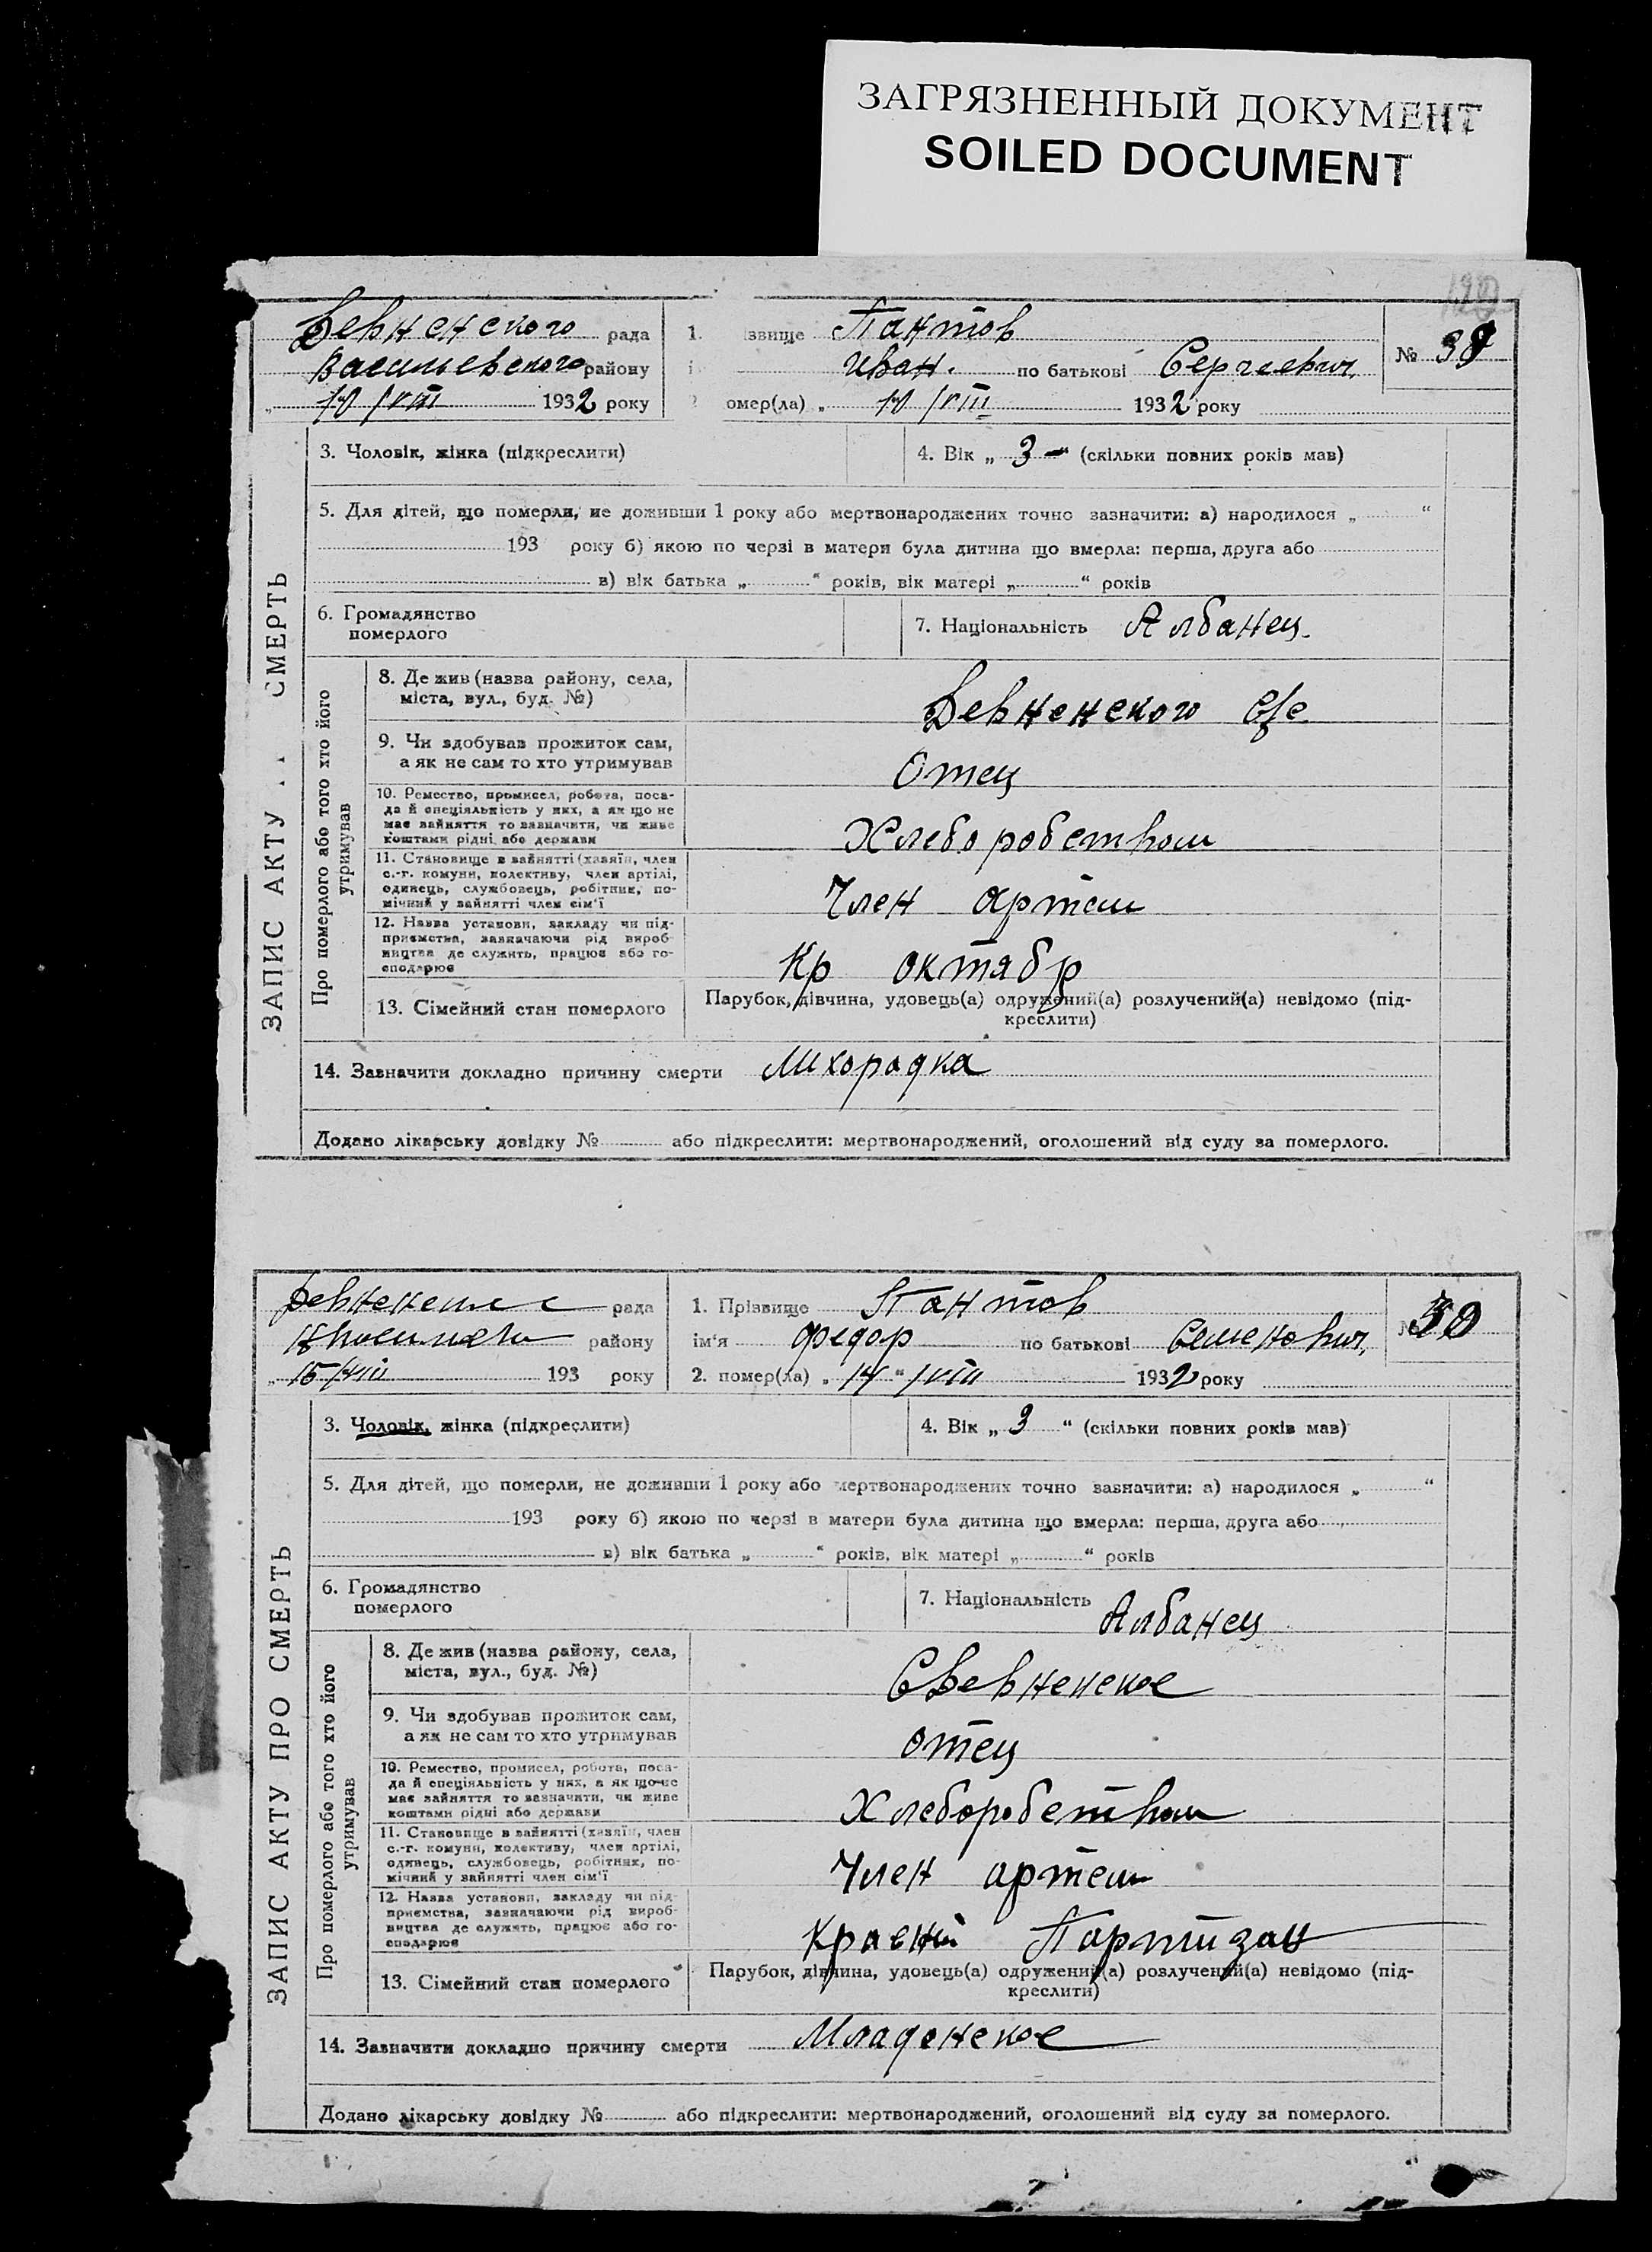 ЗАГРЯЗНЕННЫЙ ДОКУМЕНТ
SOILED DOCUMENT
Девненского рада
Васильевского району
10/VIII 1932 року
1. ізвище Пантов
Иван. по батькові Сергеевич.
омер(ла) „ 10/VIII 1932 року
№ 38
ЗАПИС АКТУ СМЕРТЬ
3. Чоловік, жінка (підкреслити)
4. Вік „ 3 “ (скільки повних років мав)
5. Для дітей, що померли, не доживши 1 року або мертвонароджених точно зазначити: а) народилося „ “
193 року б) якою по черзі в матери була дитина що вмерла: перша, друга або
в) вік батька „ “ років, вік матері „ “ років
6. Громадянство
померлого
7. Національність Албанец.
Про померлого або того хто його
утримував
8. Де жив (назва району, села,
міста, вул., буд. №)
Девненского с/с
9. Чи здобував прожиток сам,
а як не сам то хто утримував
Отец
10. Ремество, промисел, робота, поса-
да й спеціяльність у них, а як що не
має зайняття то зазначити, чи живе
коштами рідні або держави
Хлеборобством
11. Становище в зайнятті (хазяїн, член
с.-г. комуни, колективу, член артілі,
одинець, службовець, робітник, по-
мічний у зайнятті член сім'ї
Член артели
12. Назва установи, закладу чи під-
приємства, зазначаючи рід вироб-
ництва де служить, працює або го-
сподарює
Кр октябр
13. Сімейний стан померлого
Парубок, дівчина, удовець(а) одружений(а) розлучений(а) невідомо (під-
креслити)
14. Зазначити докладно причину смерти Лихорадка
Додано лікарську довідку № або підкреслити: мертвонароджений, оголошений від суду за померлого.
рада
району
15/VIII 193 року
1. Прізвище Пантов
ім'я Федор по батькові Семенович.
2. помер(ла) „ 14 “ /VIII 1932 року
№
ЗАПИС АКТУ ПРО СМЕРТЬ
3. Чоловік, жінка (підкреслити)
4. Вік „ 3 “ (скільки повних років мав)
5. Для дітей, що померли, не доживши 1 року або мертвонароджених точно зазначити: а) народилося „ “
193 року б) якою по черзі в матери була дитина що вмерла: перша, друга або
в) вік батька „ “ років, вік матері „ “ років
6. Громадянство
померлого
7. Національність Албанец
Про померлого або того хто його
утримував
8. Де жив (назва району, села,
міста, вул., буд. №)
С Девненское
9. Чи здобував прожиток сам,
а як не сам то хто утримував
отец
10. Ремество, промисел, робота, поса-
да й спеціяльність у них, а як що не
має зайняття то зазначити, чи живе
коштами рідні або держави
Хлеборобством
11. Становище в зайнятті (хазяїн, член
с.-г. комуни, колективу, член артілі,
одинець, службовець, робітник, по-
мічний у зайнятті член сім'ї
Член артели
12. Назва установи, закладу чи під-
приємства, зазначаючи рід вироб-
ництва де служить, працює або го-
сподарює
Красный Партизан
13. Сімейний стан померлого
Парубок, дівчина, удовець(а) одружений(а) розлучений(а) невідомо (під-
креслити)
14. Зазначити докладно причину смерти Младенское
Додано лікарську довідку № або підкреслити: мертвонароджений, оголошений від суду за померлого.